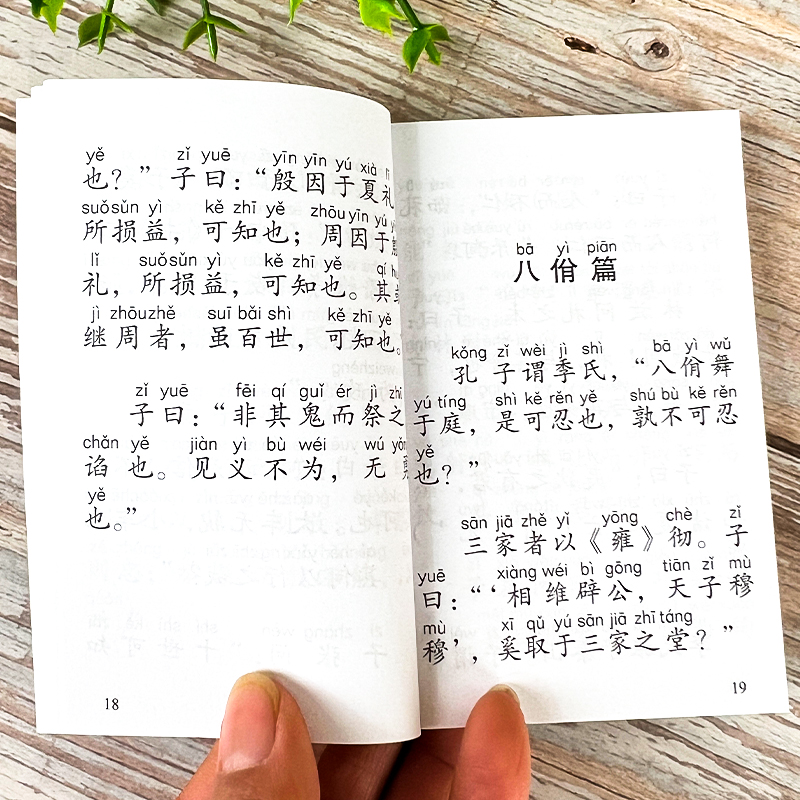 yě zǐ yuē yīn yīn yú xià lǐ
也？”子曰：“殷因于夏礼
suǒ sǔn yì kě zhī yě zhōu yīn yú
所损益，可知也；周因于
lǐ suǒ sǔn yì kě zhī yě qí
礼，所损益，可知也。其
jì zhōu zhě suī bǎi shì kě zhī yě
继周者，虽百世，可知也。
zǐ yuē fēi qí guǐ ér jì zhī
子曰：“非其鬼而祭之
chǎn yě jiàn yì bù wéi wú
谄也。见义不为，无
yě
也。”
18
bā yì piān
八佾篇
kǒng zǐ wèi jì shì bā yì wǔ
孔子谓季氏，“八佾舞
yú tíng shì kě rěn yě shú bù kě rěn
于庭，是可忍也，孰不可忍
yě
也？”
sān jiā zhě yǐ yōng chè zǐ
三家者以《雍》彻。子
yuē xiàng wéi bì gōng tiān zǐ mù
曰：“‘相维辟公，天子穆
mù xī qǔ yú sān jiā zhī táng
穆’，奚取于三家之堂？”
19